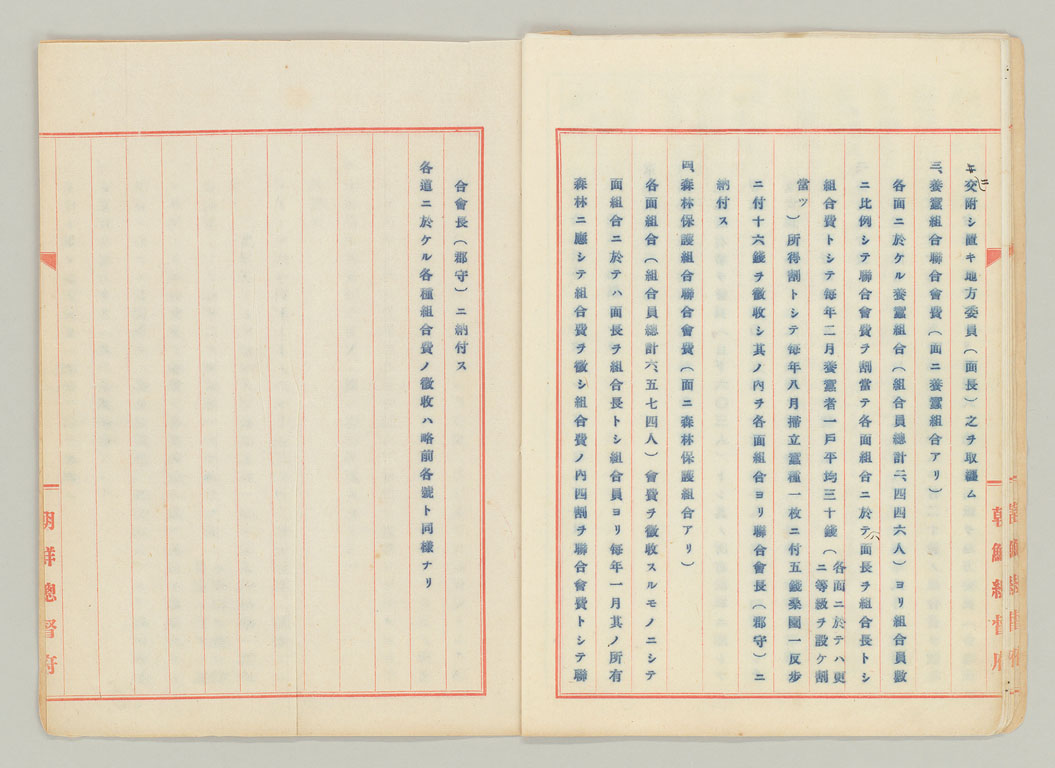 ニ交附シ置キ地方委員(面長)之ヲ取纏ム
三、養蠶組合聯合會費(面ニ養蠶組合アリ)
各面ニ於ケル養蠶組合(組合員總計二、四四六人)ヨリ組合員數
ニ比例シテ聯合會費ヲ割當テ各面組合ニ於テハ面長ヲ組合長トシ
組合費トシテ毎年二月養蠶者一戸平均三十錢(各面ニ於テハ更
ニ等級ヲ設ケ割
當ツ)所得割トシテ毎年八月掃立蠶種一枚ニ付五錢桑園一反歩
ニ付十六錢ヲ徴收シ其ノ內ヲ各面組合ヨリ聯合會長(郡守)ニ
納付ス
四、森林保護組合聯合會費(面ニ森林保護組合アリ)
各面組合(組合員總計六、五七四人)會費ヲ徴收スルモノニシテ
面組合ニ於テハ面長ヲ組合長トシ組合員ヨリ毎年一月其ノ所有
森林ニ應シテ組合費ヲ徴シ組合費ノ內四割ヲ聯合會費トシテ聯
朝鮮總督府
合會長(郡守)ニ納付ス
各道ニ於ケル各種組合費ノ徴收ハ略前各號ト同樣ナリ
朝鮮總督府